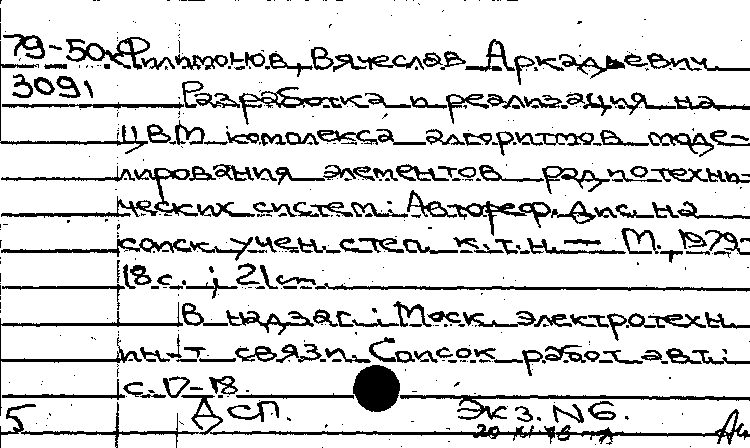 79-50к Филимонов, Вячеслав Аркадьевич.
3091 Разработка и реализация на
ЦВМ комплекса алгоритмов моде-
лирования элементов радиотехни-
ческих систем: Автореф. дис. на
соиск. учен. степ. к.т.н. — М., 1979-
18 с. ; 21 cm.
В надзаг.: Моск. электротехн.
ин-т связи. Список работ авт.:
с. 17-18.
5 ДСП. Экз. N6.